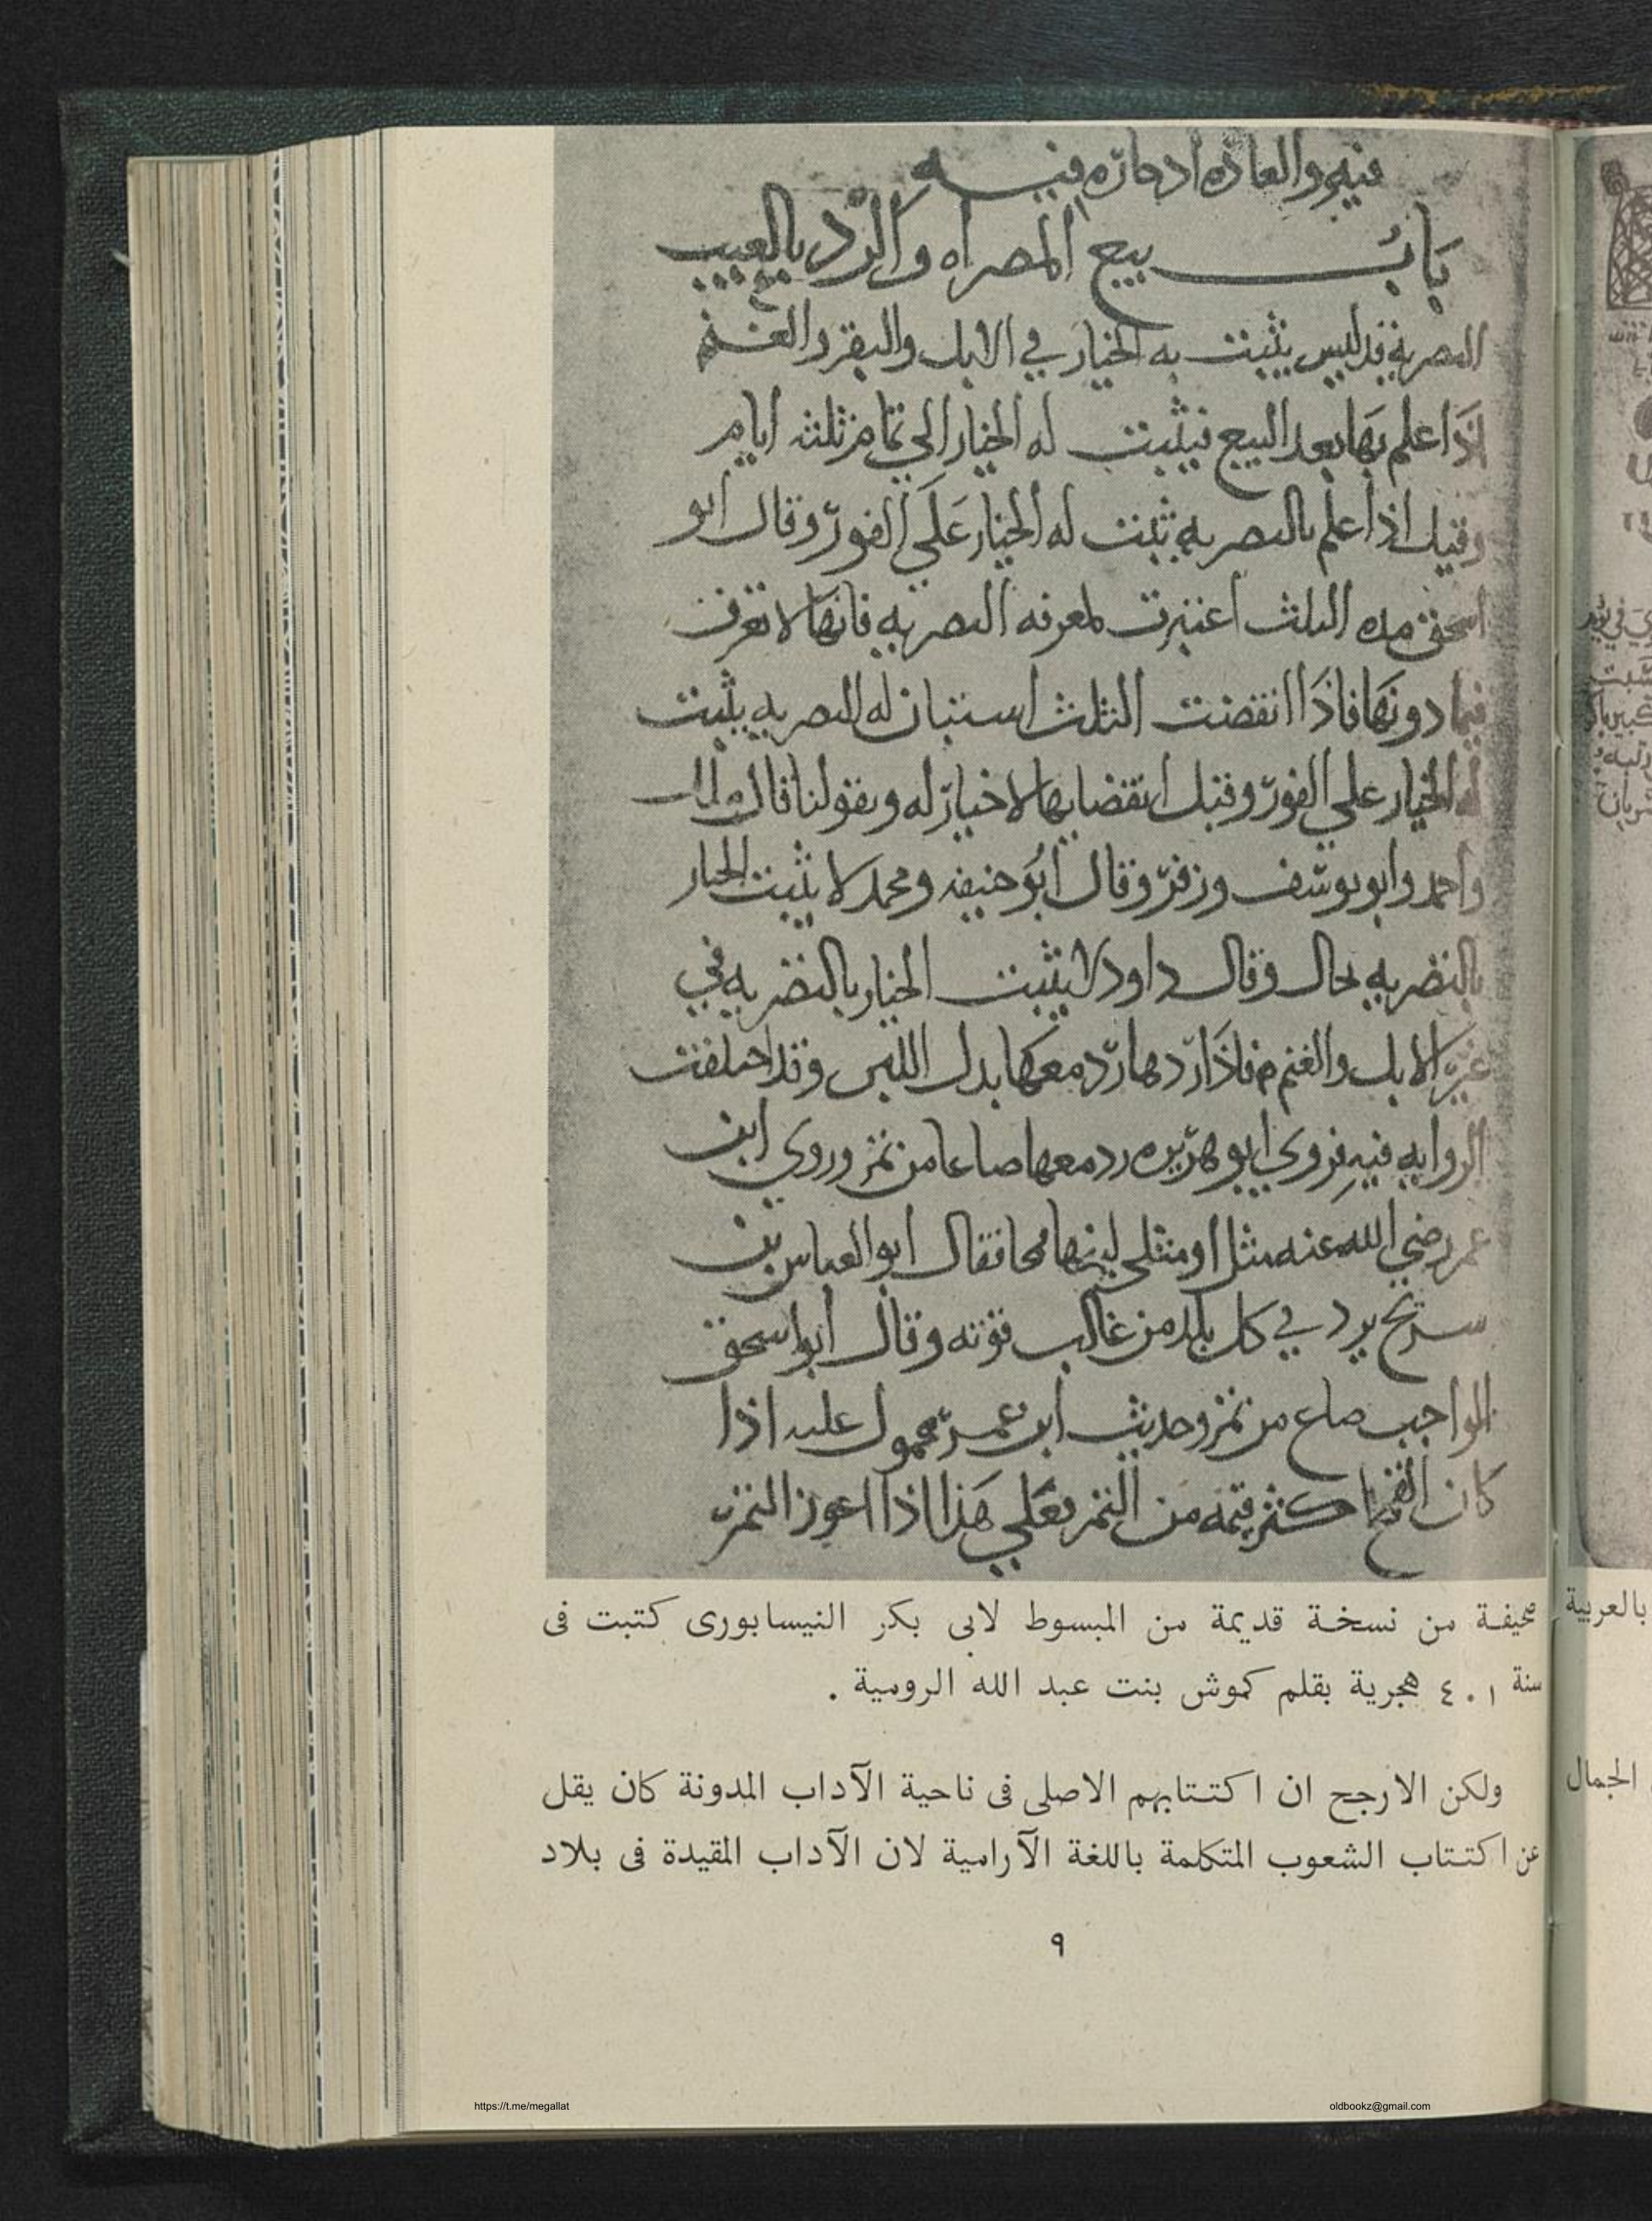 فيه والعادة ادخاره فيه
باب بيع المصراه والرد بالعيب
التصرية تدليس يثبت به الخيار في الابل والبقر والغنم
اذا علم بها بعد البيع فيثبت له الخيار الي تمام ثلثه ايام
وقيل اذا علم بالتصريه ثبت له الخيار علي الفور وقال ابو
اسحق مده الثلث اعتبرت لمعرفه التصريه فانها لا تعرف
فيما دونها فاذا انقضت الثلث استبان له التصريه يثبت
له الخيار علي الفور وقبل انقضايها لا خيار له وبقولنا قال ملك
واحمد وابو يوسف وزفر وقال ابو حنيفه ومحمد لا يثبت الخيار
بالتصريه بحال وقال داود لا يثبت الخيار بالتصريه في
غير الابل والغنم فاذا ردها رد معها بدل اللبن وقد اختلفت
الروايه فيه فروي ابو هريره رد معها صاعا من تمر وروي ابن
عمر رضي الله عنه مثل او مثلي لبنها قمحا فقال ابو العباس بن
سريج يرد في كل بلد من غالب قوته وقال ابو اسحق
الواجب صاع من تمر وحديث ابن عمر محمول عليه اذا
كان القمح اكثر قيمه من التمر فعلي هذا اذا اعوز التمر
صحيفة من نسخة قديمة من المبسوط لابى بكر النيسابورى كتبت فى
سنة ٤٠١ هجرية بقلم كموش بنت عبد الله الرومية .
ولكن الارجح ان اكتتابهم الاصلى فى ناحية الآداب المدونة كان يقل
عن اكتتاب الشعوب المتكلمة باللغة الآرامية لان الآداب المقيدة فى بلاد
٩
بالعربية
الجمال
https://t.me/megallat
oldbookz@gmail.com